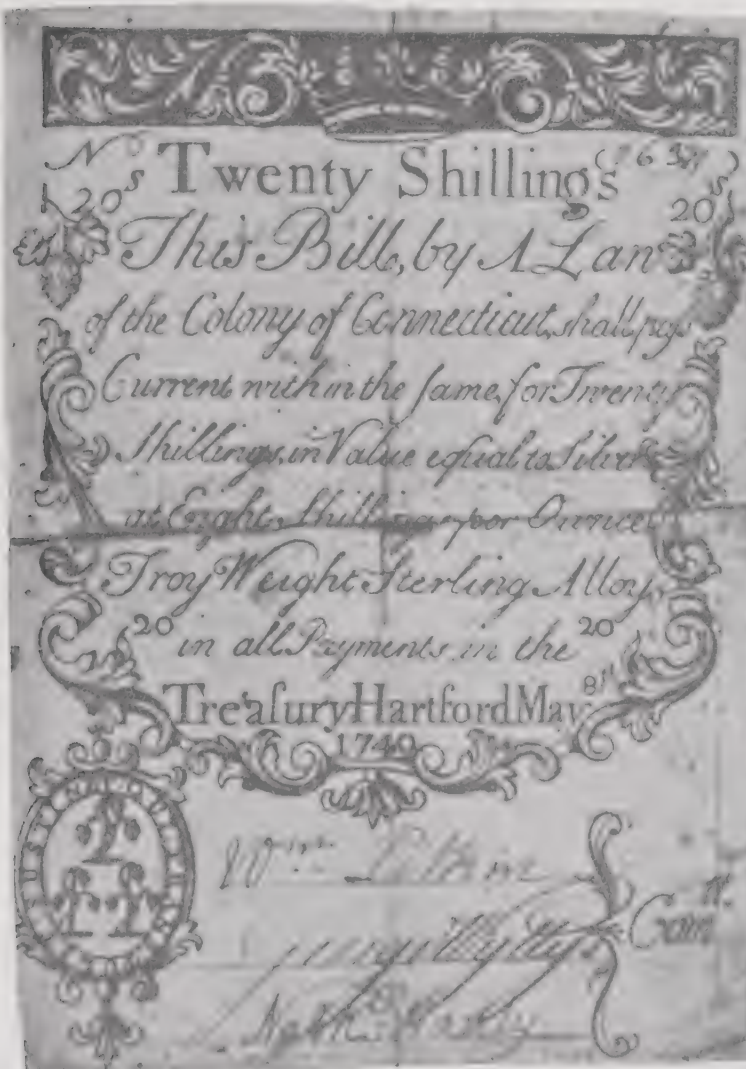 No (7631)
Twenty Shillings
20s 20s
This Bill, by A Law
of the Colony of Connecticut, shall pass
Current within the same, for Twenty
Shillings, in Value equal to Silver
at Eight Shillings per Ounce
Troy Weight Sterling Alloy,
20 in all Payments in the 20
Treasury Hartford May 8th
1740
Wm
George Wyllys Comtt
Nathll Stanly
SUSTINET QUI TRANSTULIT